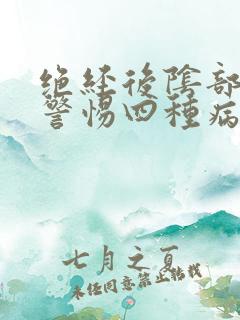 绝经後陰部
警惕四種病
七月之夏
未经同意禁止转载